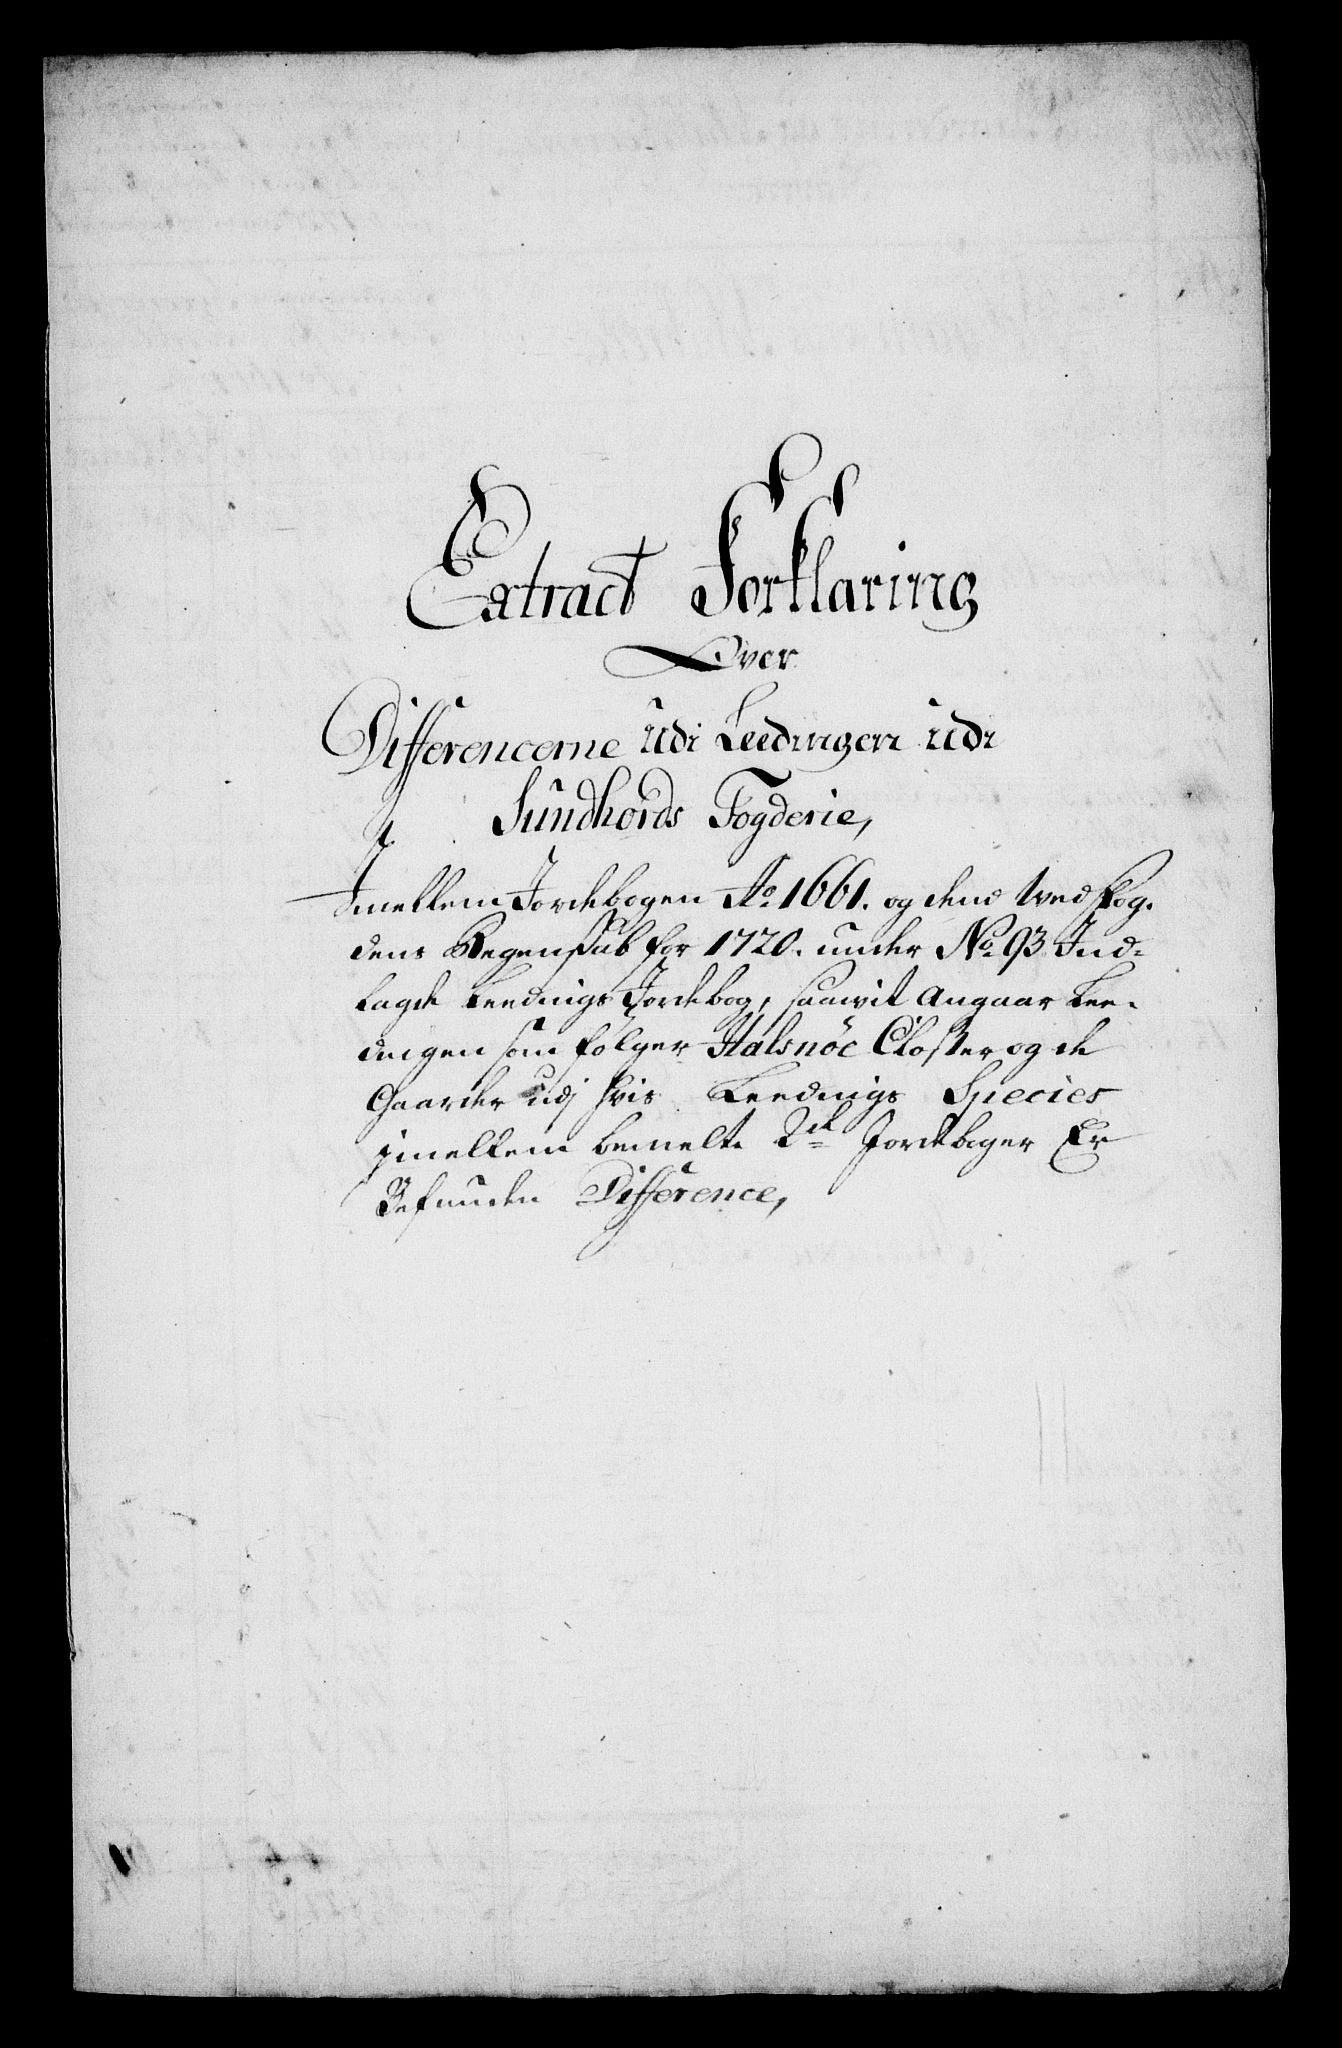 Extract Forklaring
Over
Differencerne udi Leedingen udi
Sundhords Fogderie,
Imellem Jordebogen Ao. 1661. og dend wed Fog-
dens Regenskab for 1720. under No. 93 Ind-
lagde Leedings Jordebog, saawit Angaar Lee-
dingen som følger Halsnöe Closter og de
Gaarder udj hvis Leedings Species
jmellem bemelte 2de Jordebøger Er
Befunden Difference,